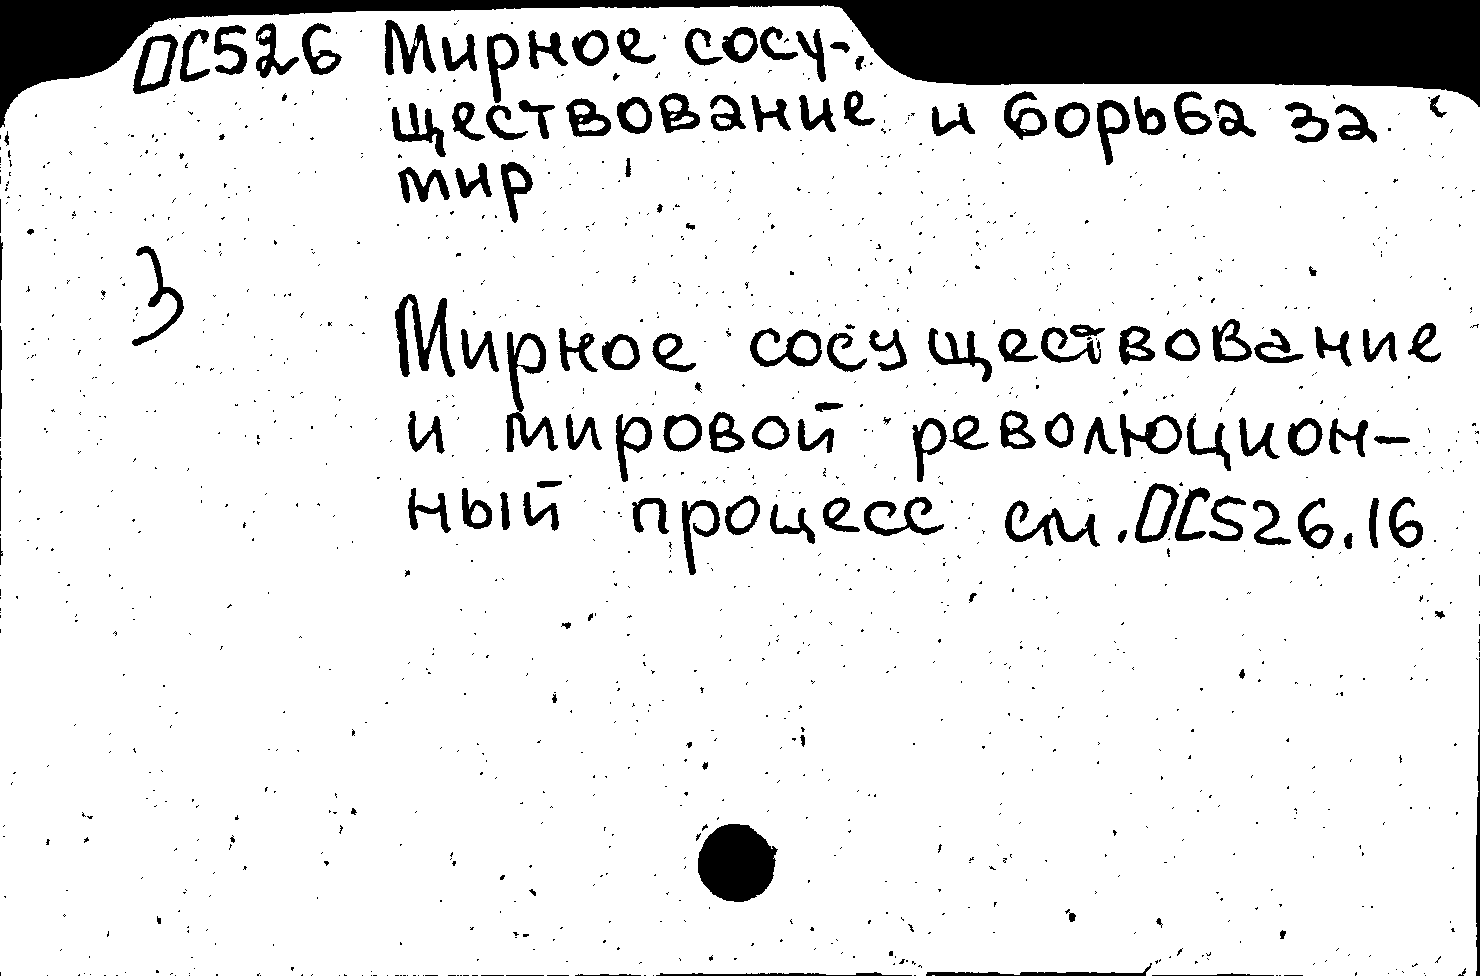 ОС526 Мирное сосу-
ществование и борьба за
мир
3
Мирное сосуществование
и мировой революцион-
ный процесс см. ОС526.16